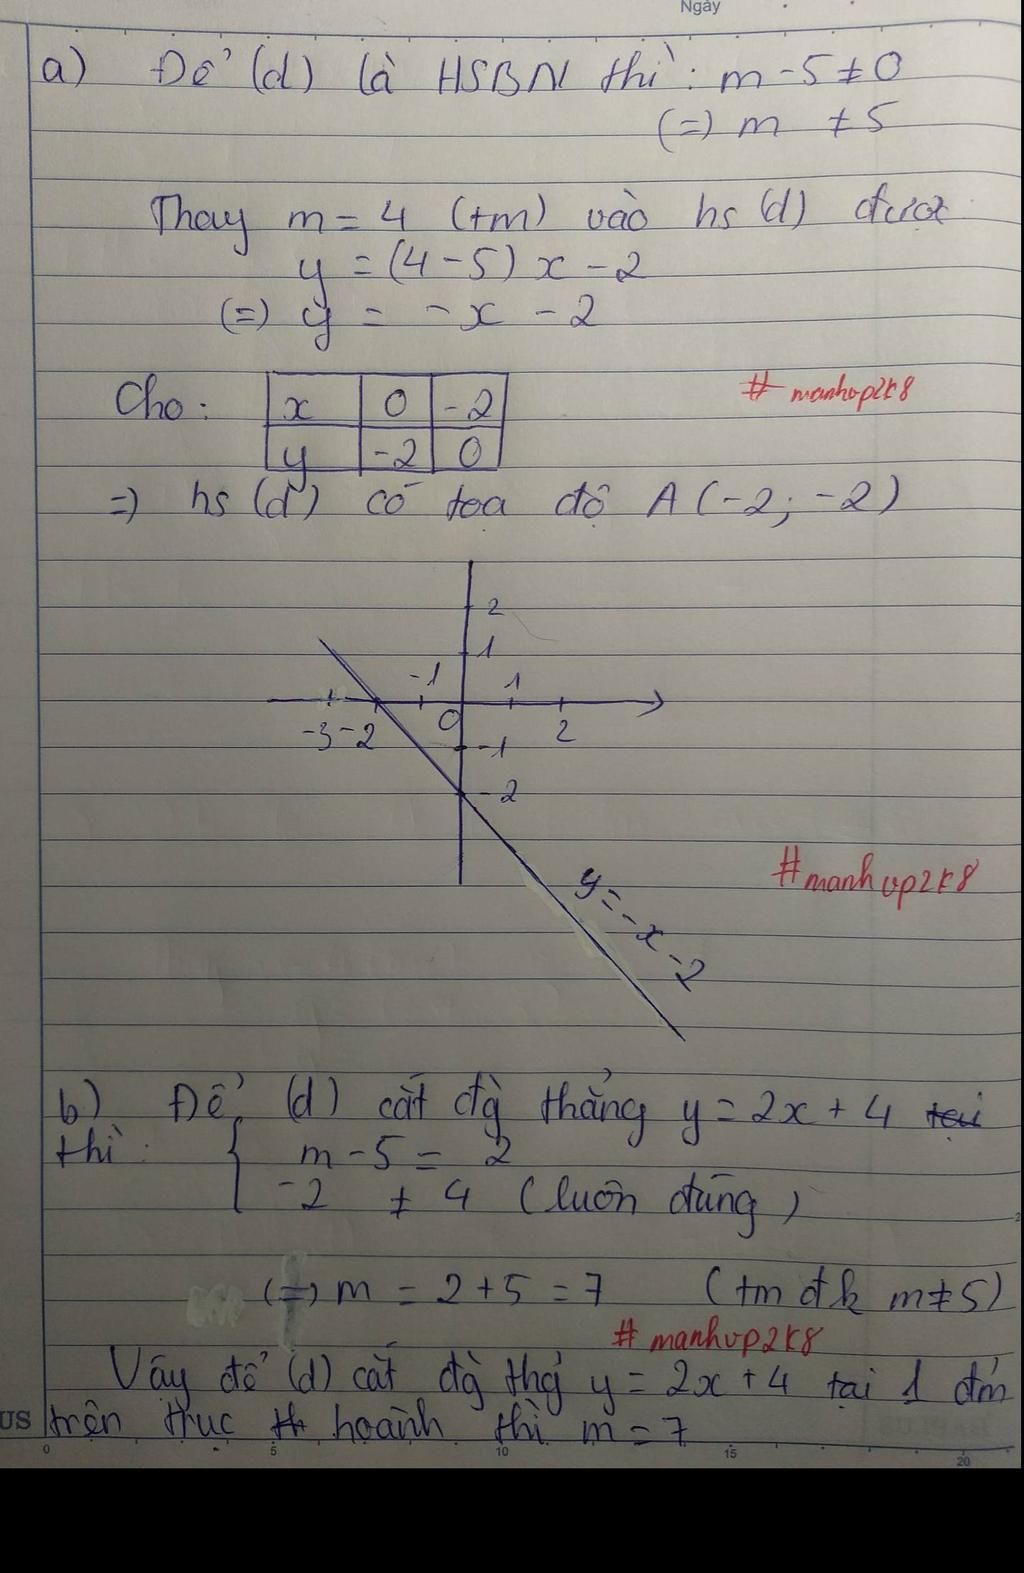 Ngày
a) Để (d) là HSBN thì: m - 5 ≠ 0
(=) m ≠ 5
Thay m = 4 (tm) vào hs (d) được
y = (4 - 5) x - 2
(=) y = - x - 2
Cho: x 0 -2
y -2 0
# manhvp2k8
=) hs (d) có tọa độ A (-2; -2)
2
1
-1 1
-3 -2 0 2
-1
-2
y = -x - 2
#manhvp2k8
b) Để (d) cắt đg̀ thẳng y = 2x + 4 tại
thì: m - 5 = 2
-2 ≠ 4 (luôn đúng)
(=) m = 2 + 5 = 7 (tm đk m ≠ 5)
# manhvp2k8
Vậy để (d) cắt đg̀ thg̉ y = 2x + 4 tại 1 đm̉
trên trục hoành thì m = 7
0 5 10 15 20